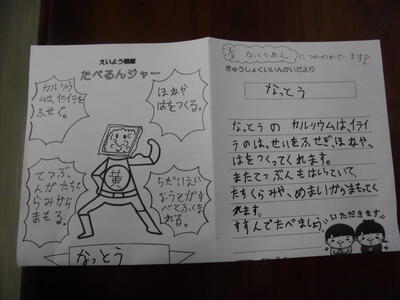 えいよう戦隊
たべるんジャー
カルシウ
ムは、イライラを
ふせぐ。
ほねや
はをつくる。
てつぶ、
んが たちく
らみから
まもる。
5だいえい
ようそがす
べてふくま
れる。
黄
なっとう
なっとうあえ
につかわれています!
きゅうしょくいいんかいだより
なっとう
なっとうの カルシウムは、イライ
ラのはっせいをふせぎ、ほねや、
はをつくってくれます。
またてつぶんもはいっていて、
たちくらみや、めまいからまもってく
れます。
すすんでたべましょう。
いただきます!!